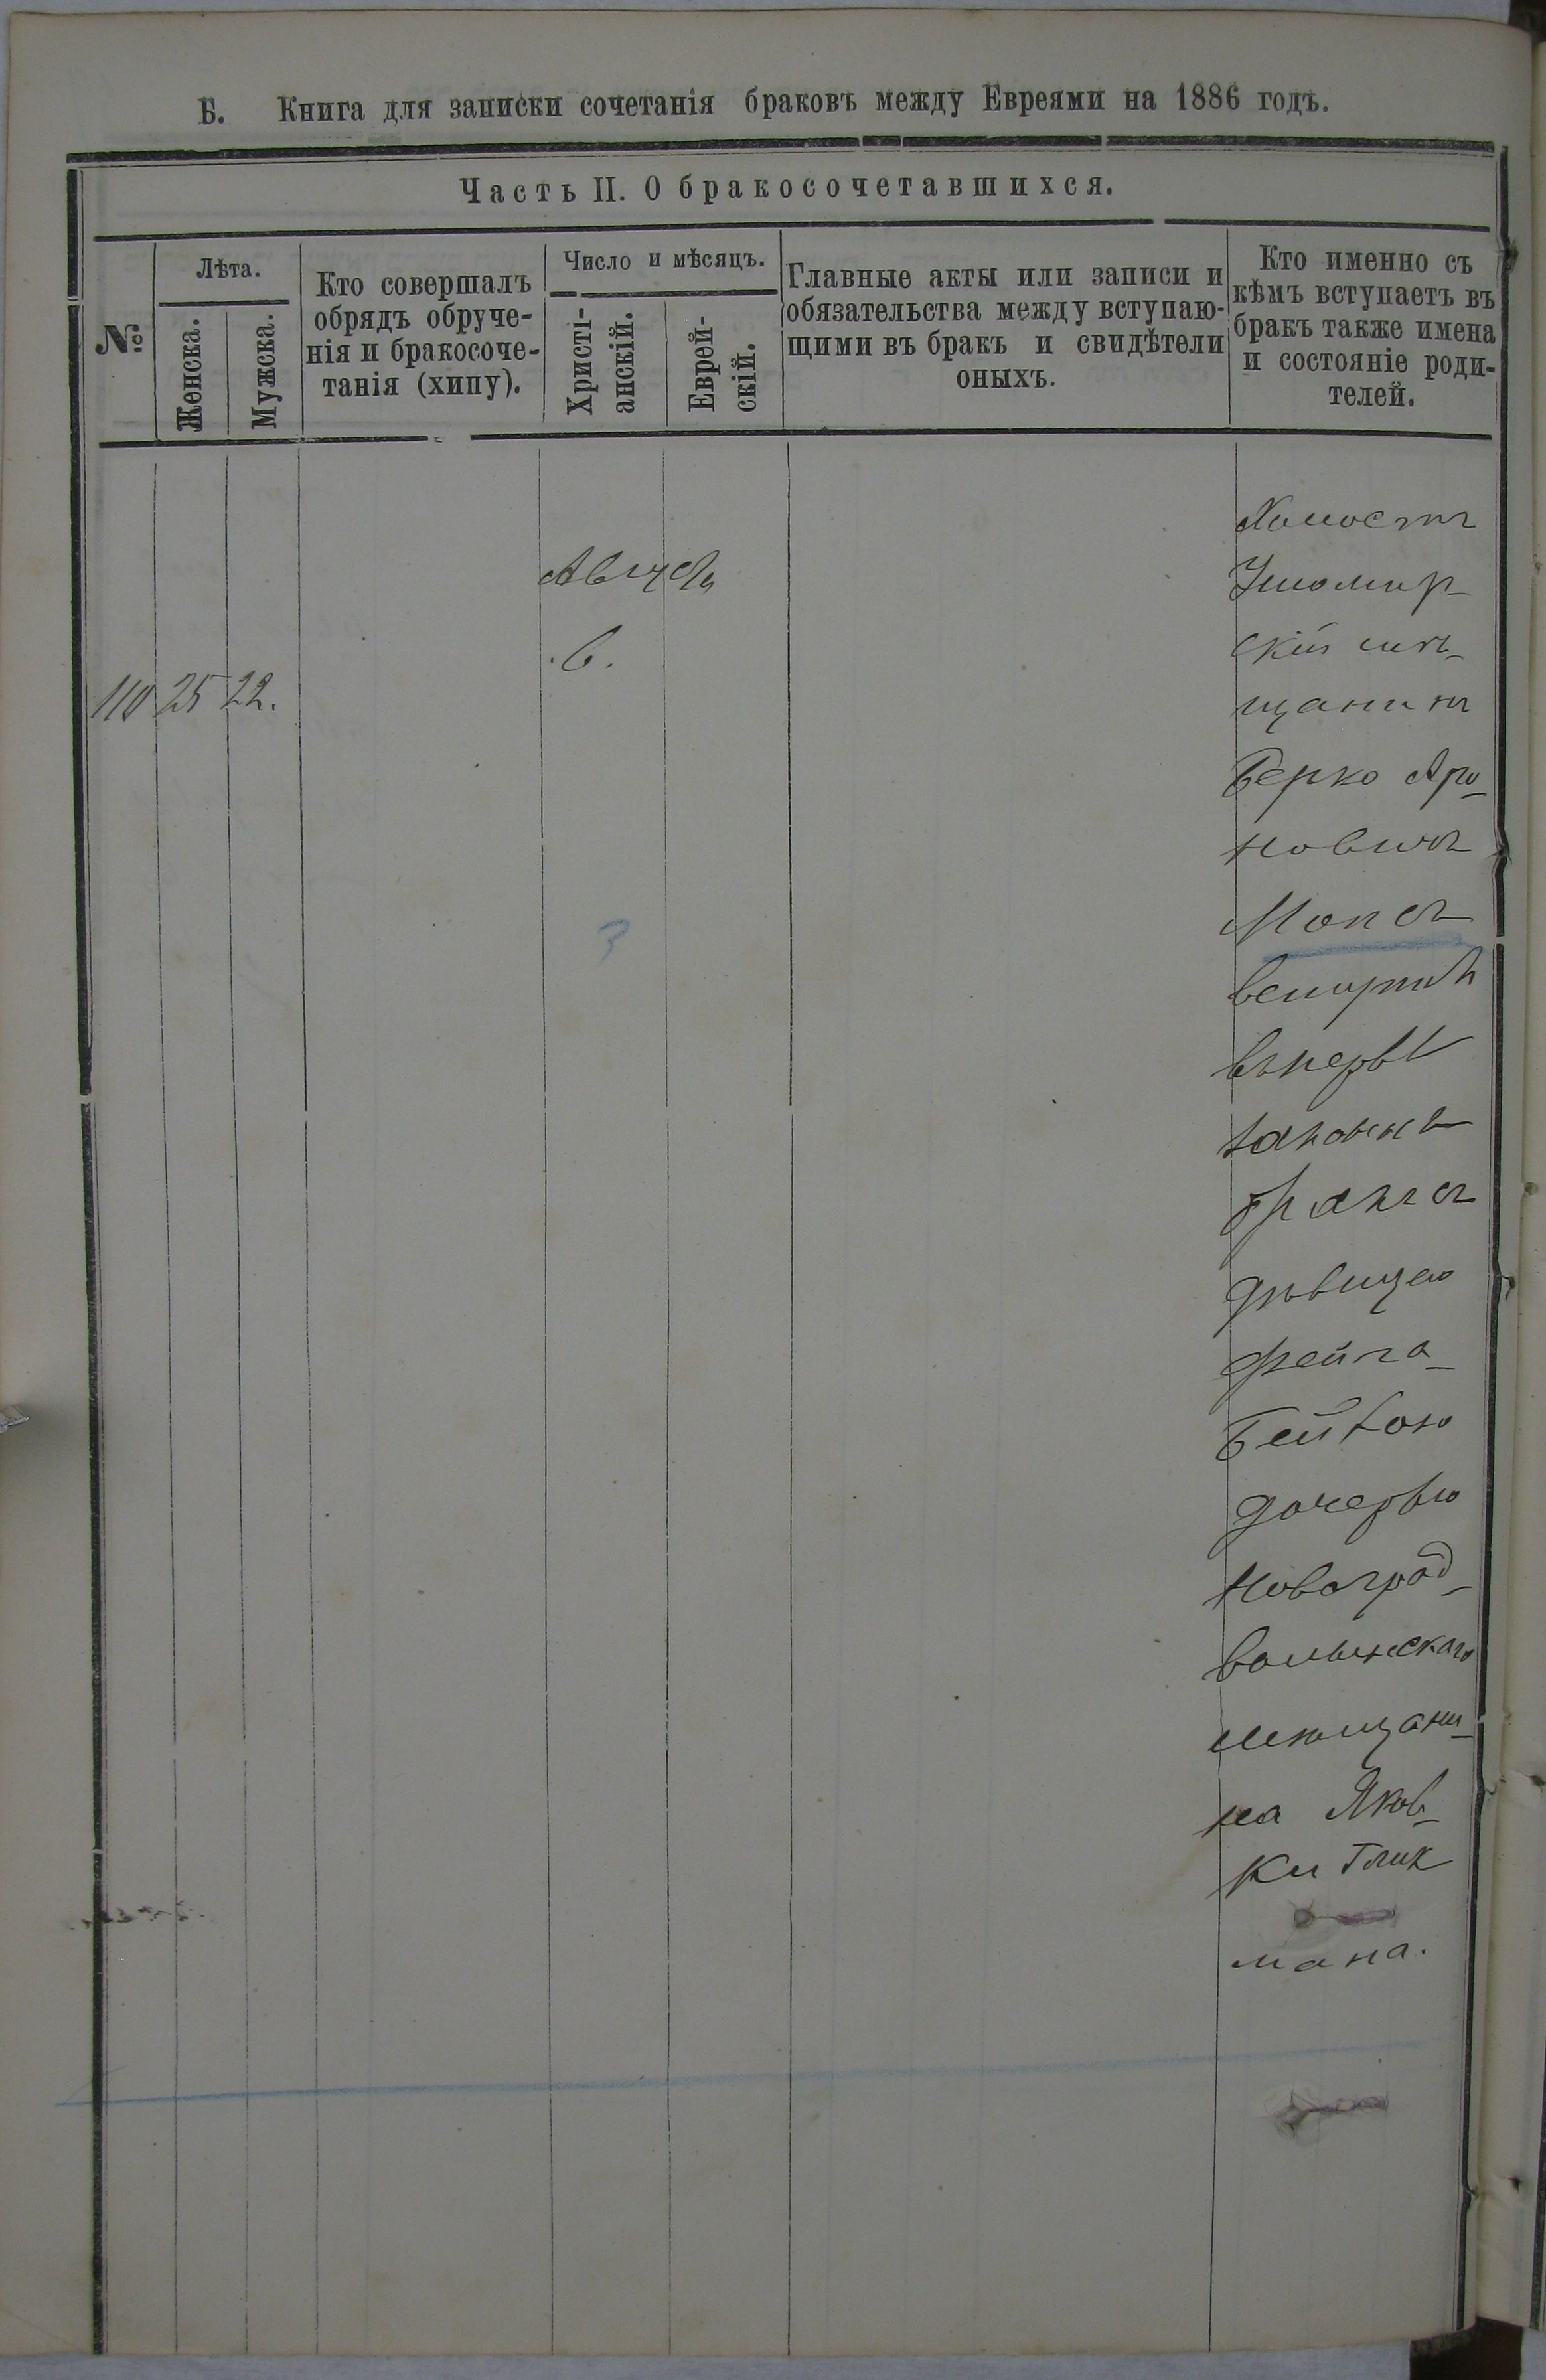 Б. Книга для записки сочетанія браковъ между Евреями на 1886 годъ.
Часть II. О бракосочетавшихся.
№
Лѣта.
Женска.
Мужска.
Кто совершалъ
обрядъ обруче-
нія и бракосоче-
танія (хипу).
Число и мѣсяцъ.
Христі-
анскій.
Еврей-
скій.
Главные акты или записи и
обязательства между вступаю-
щими въ бракъ и свидѣтели
оныхъ.
Кто именно съ
кѣмъ вступаетъ въ
бракъ также имена
и состояніе роди-
телей.
110 25 22.
6.
3
Холостъ
Жиомир-
скій мѣ-
щанинъ
Берко Аро-
новичъ
вступилъ
въ первы
законны
бракъ
дѣвицею
Фейга-
Бейлою
дочерью
Новоград-
волынскаго
мѣщани-
на Яков-
ки Глик
мана.